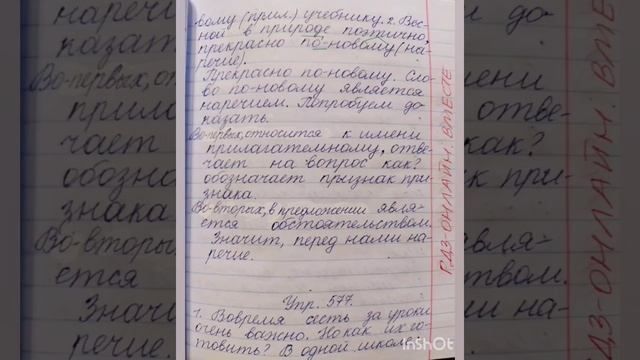 вому (прил.) учебнику. 2. Вес-
ной в природе поэтично,
прекрасно по-новому (на-
речие).
Прекрасно по-новому. Сло-
во по-новому является
наречием. Попробуем до-
казать.
Во-первых, относится к имени
прилагательному, отве-
чает на вопрос как?
обозначает признак при-
знака.
Во-вторых, в предложении явля-
ется обстоятельством.
Значит, перед нами на-
речие.
Упр. 577.
1. Вовремя сесть за уроки
очень важно. Но как их го-
товить? В одной
ГДЗ-ОНЛАЙН. ВМЕСТЕ
InShOt
наречием
казать.
Во-первых, от
прилага
чает
обозна
знака
Во-вторы
ется
Значит
речие.
м до-
имени
отве-
как?
к при-
явля-
ством.
и на-
ДЗ-ОНЛАЙН. ВМЕСТЕ